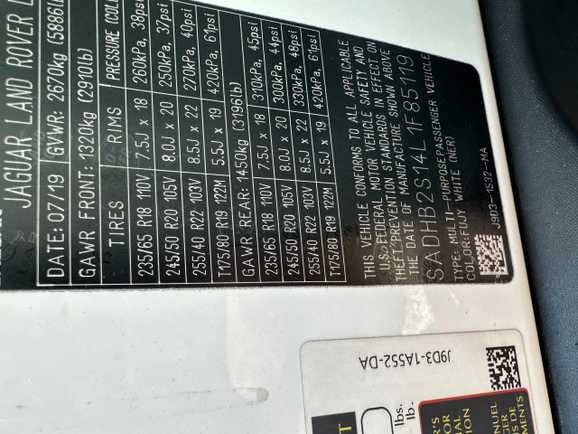 JAGUAR LAND ROVER L
DATE: 07/19 GVWR: 2670kg (5886l
GAWR FRONT: 1320kg (2910lb)
TIRES RIMS PRESSURE (COL
235/65 R18 110V 7.5J x 18 260kPa, 38psi
245/50 R20 105V 8.0J x 20 250kPa, 37psi
255/40 R22 103V 8.5J x 22 270kPa, 40psi
T175/80 R19 122M 5.5J x 19 420kPa, 61psi
GAWR REAR: 1450kg (3196lb)
235/65 R18 110V 7.5J x 18 310kPa, 45psi
245/50 R20 105V 8.0J x 20 300kPa, 44psi
255/40 R22 103V 8.5J x 22 330kPa, 48psi
T175/80 R19 122M 5.5J x 19 420kPa, 61psi
THIS VEHICLE CONFORMS TO ALL APPLICABLE
U.S. FEDERAL MOTOR VEHICLE SAFETY AND
THEFT PREVENTION STANDARDS IN EFFECT ON
THE DATE OF MANUFACTURE SHOWN ABOVE
SADHB2S14L1F85119
TYPE: MULTI-PURPOSE PASSENGER VEHICLE
COLOR: FUJI WHITE (NER)
J9D3-1532-MA
J9D3-1A552-DA
lbs.
lb.